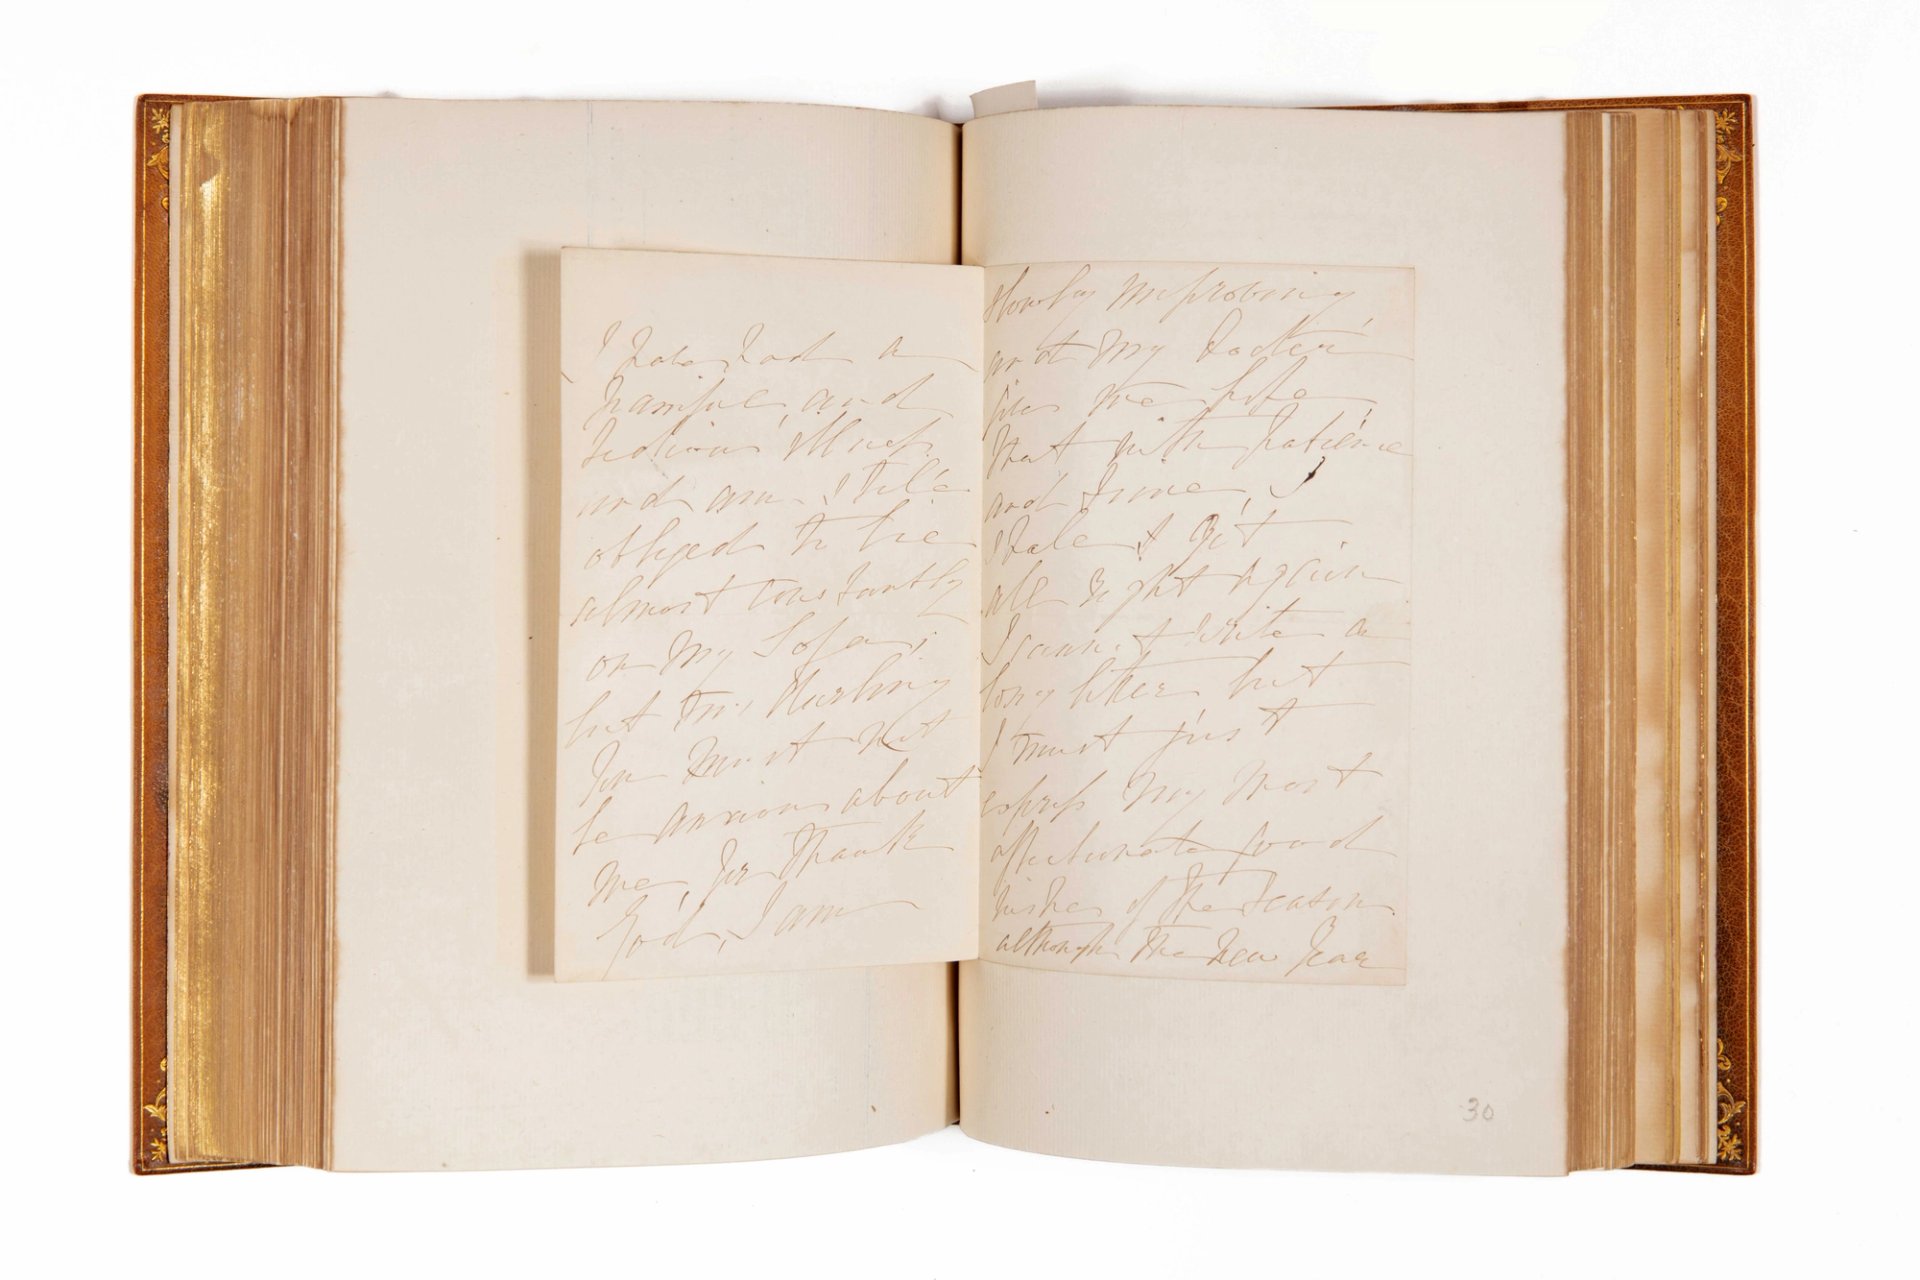 I have had a
painful and
tedious illness
and am still
obliged to lie
almost constantly
on my Sofa;
but my Darling
you must not
be anxious about
me, for thank
God, I am
slowly improving
and my Doctor
gives me hope
that with patience
and time, I
shall get
all right again
I cannot write a
long letter but
I must just
express my most
affectionate good
wishes of the Season
although the New Year
30